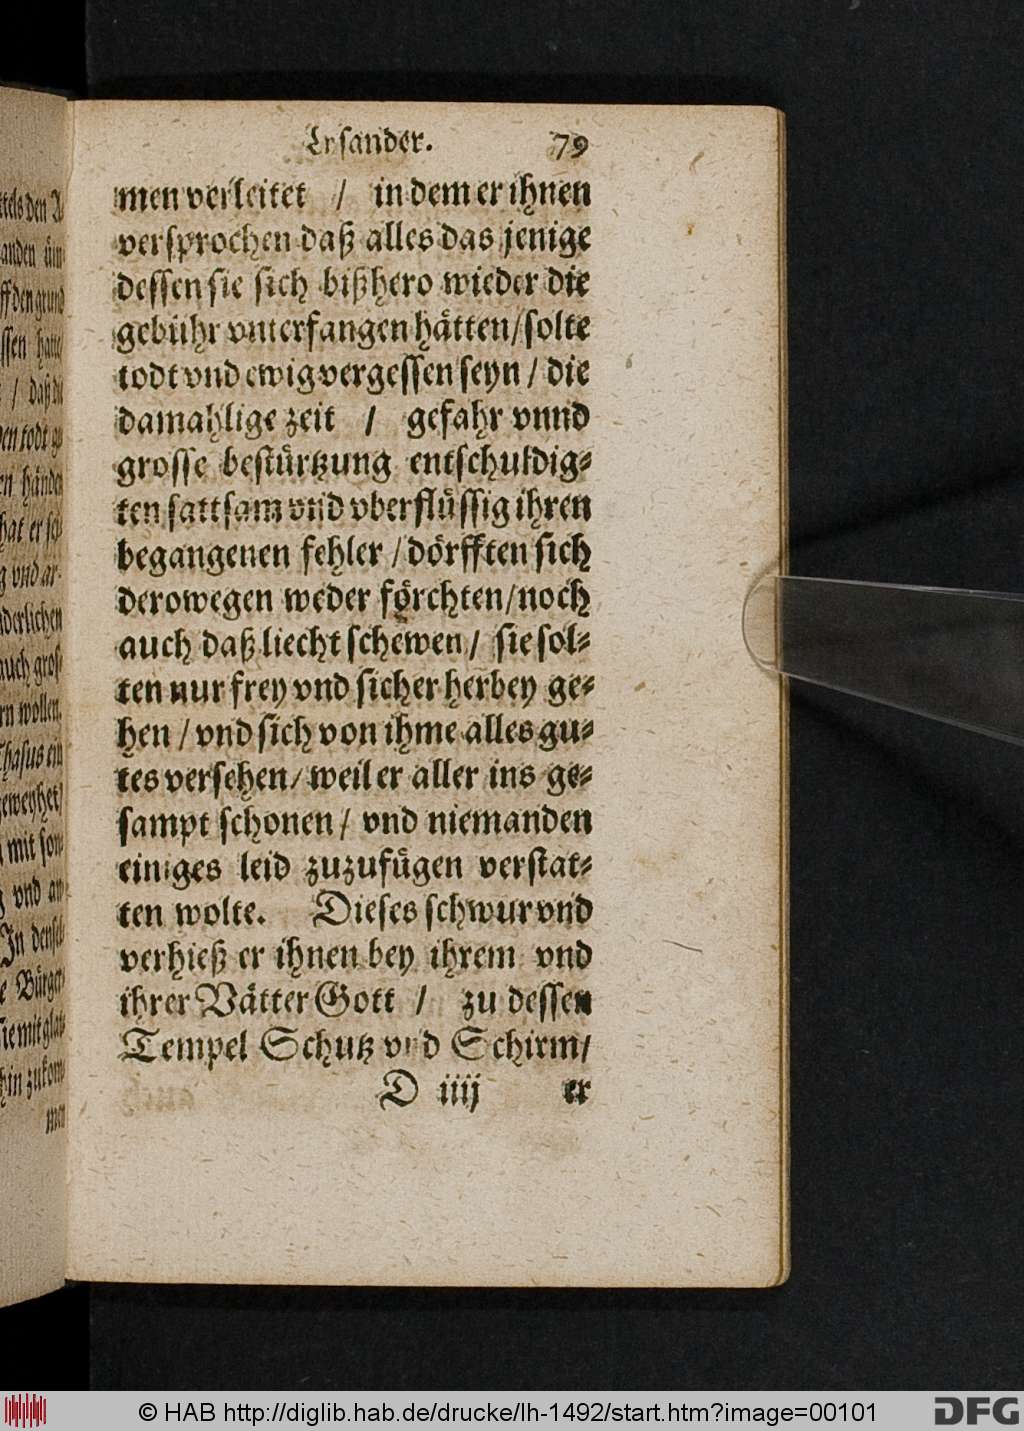 Lysander. 79
men verleitet / in dem er ihnen
versprochen daß alles das jenige
dessen sie sich bißhero wieder die
gebühr vnterfangen hätten/solte
todt vnd ewig vergessen seyn / die
damahlige zeit / gefahr vnnd
grosse bestürtzung entschuldig-
ten sattsam vnd vberflüssig ihren
begangenen fehler / dörfften sich
derowegen weder förchten/noch
auch daß liecht schewen / sie sol-
ten nur frey vnd sicher herbey ge-
hen / vnd sich von ihme alles gu-
tes versehen/ weil er aller ins ge-
sampt schonen / vnd niemanden
einiges leid zuzufügen verstat-
ten wolte. Dieses schwur vnd
verhieß er ihnen bey ihrem vnd
ihrer Vätter Gott / zu dessen
Tempel Schutz vnd Schirm/
D iiij er
© HAB http://diglib.hab.de/drucke/lh-1492/start.htm?image=00101
DFG